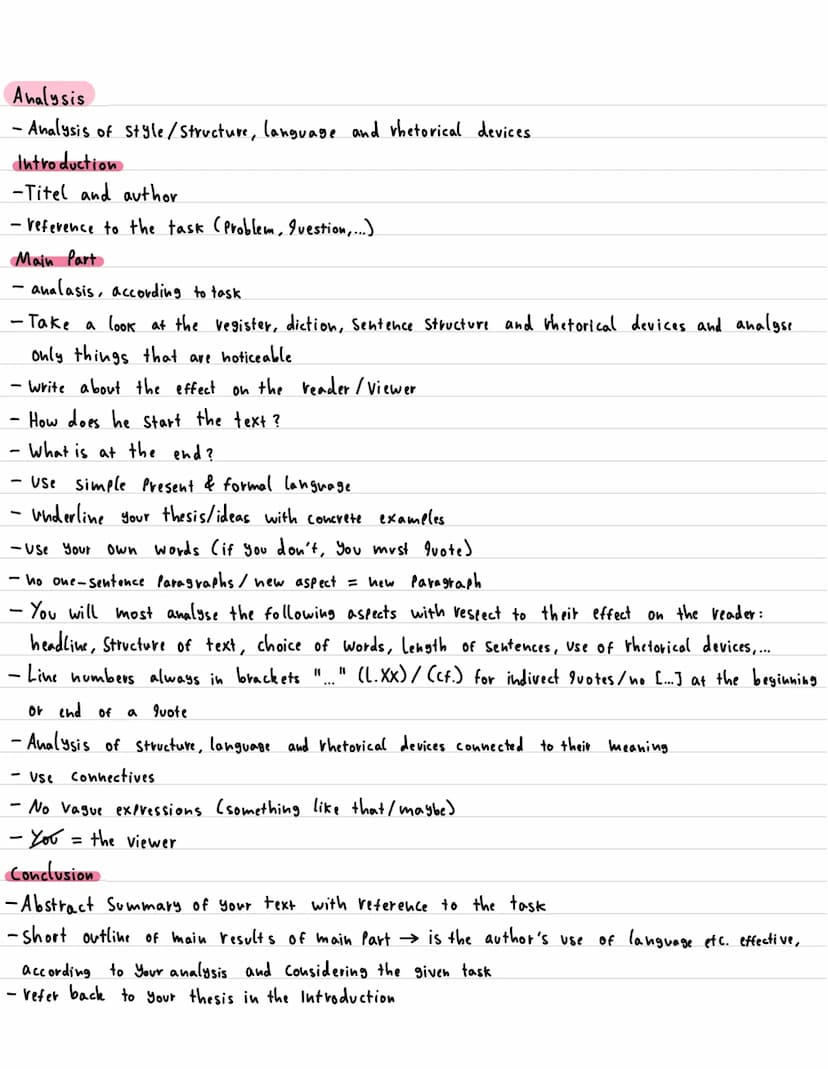 Analysis
- Analysis of style/structure, language and rhetorical devices
Introduction
- Titel and author
- reference to the task (Problem, question,...)
Main Part
- analasis, according to task
- Take a look at the register, diction, sentence structure and rhetorical devices and analyse
only things that are noticeable
- write about the effect on the reader/viewer
- How does he start the text?
- What is at the end?
- use simple present & formal language
- underline your thesis/ideas with concrete examples
- use your own words (if you don't, you must quote)
- no one-sentence paragraphs/new aspect = new paragraph
- You will most analyse the following aspects with respect to their effect on the reader:
headline, structure of text, choice of words, length of sentences, use of rhetorical devices,...
- Line numbers always in brackets "..." (l.xx)/(cf.) for indirect quotes/no [...] at the beginning
or end of a quote
- Analysis of structure, language and rhetorical devices connected to their meaning
- use connectives
- No vague expressions (something like that/maybe)
- You = the viewer
Conclusion
- Abstract summary of your text with reference to the task
- short outline of main results of main part → is the author's use of language etc. effective,
according to your analysis and considering the given task
- refer back to your thesis in the Introduction